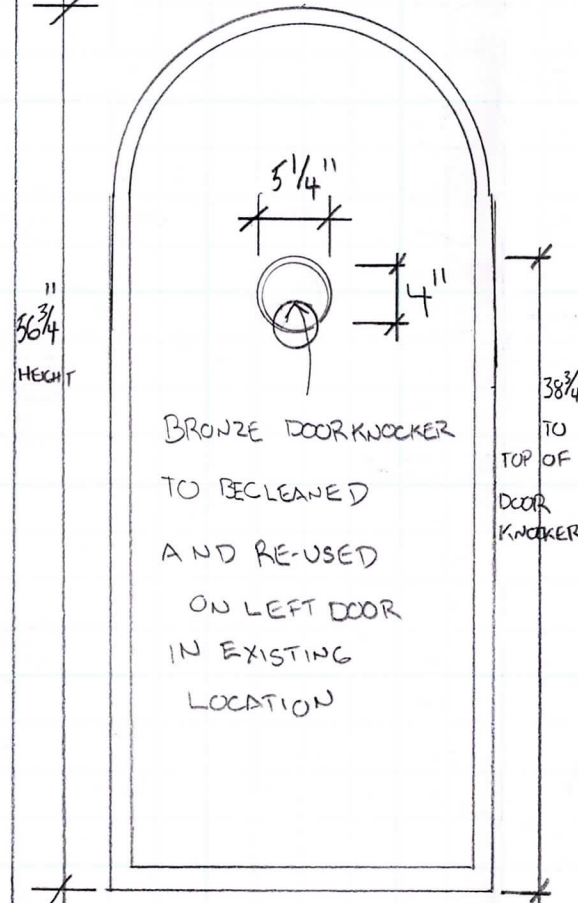 5 1/4"
4"
56 3/4"
HEIGHT
38 3/4
TO
TOP OF
DOOR
KNOCKER
BRONZE DOORKNOCKER
TO BECLEANED
AND RE-USED
ON LEFT DOOR
IN EXISTING
LOCATION